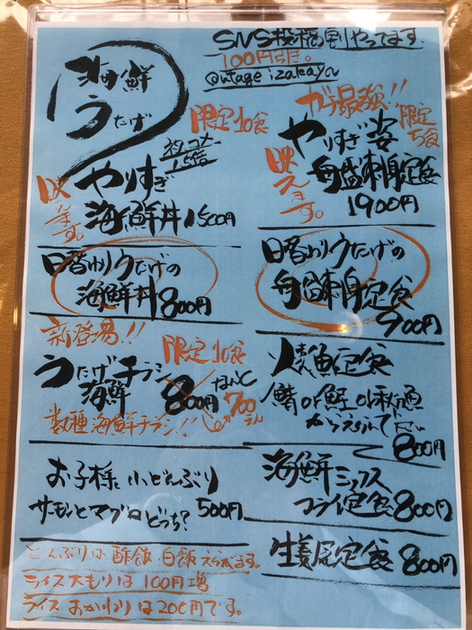 海鮮
うたげ
SNS投稿割やってます
100円引き。
@utage_izakaya
限定10食
映えます。
やりすぎ
海鮮丼 1500円
日替りうたげの
海鮮丼 800円
新登場!!
限定10食
うたげチラシ
海鮮
800円
700
数種海鮮チラシ!!
お子様小どんぶり
サーモンとマグロどっち? 500円
どんぶりは酢飯 白飯えらべます。
ライス大もりは100円増
ライスおかわりは200円です。
ガチ最強!!
限定
5食
映えます。
やりすぎ姿
舟盛刺身定食
1900円
日替りうたげの
舟盛刺身定食
900円
焼魚定食
鯖or鮭or秋魚
からえらんで下さい
800円
海鮮ミックス
フライ定食 800円
生姜焼定食 800円